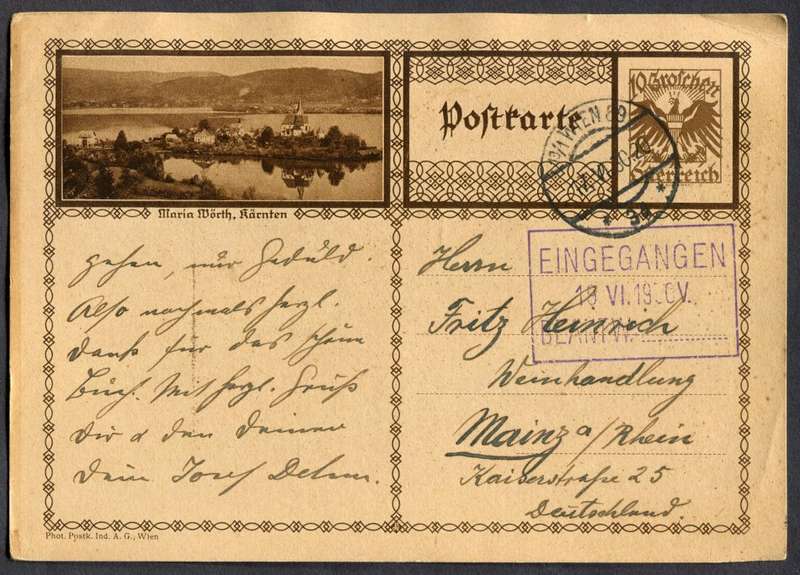 Postkarte
10 Groschen
Österreich
WIEN 89
Maria Wörth, Kärnten
gehen, nur Geduld.
Also nochmals herzl.
Dank für das schöne
Buch. Mit herzl. Gruß
Dir & den Deinen
Dein Josef
Herrn
Fritz Heinrich
Weinhandlung
Mainz a/Rhein
Kaiserstraße 25
Deutschland.
EINGEGANGEN
VI.19
BEANTW.
Phot. Postk. Ind. A. G., Wien